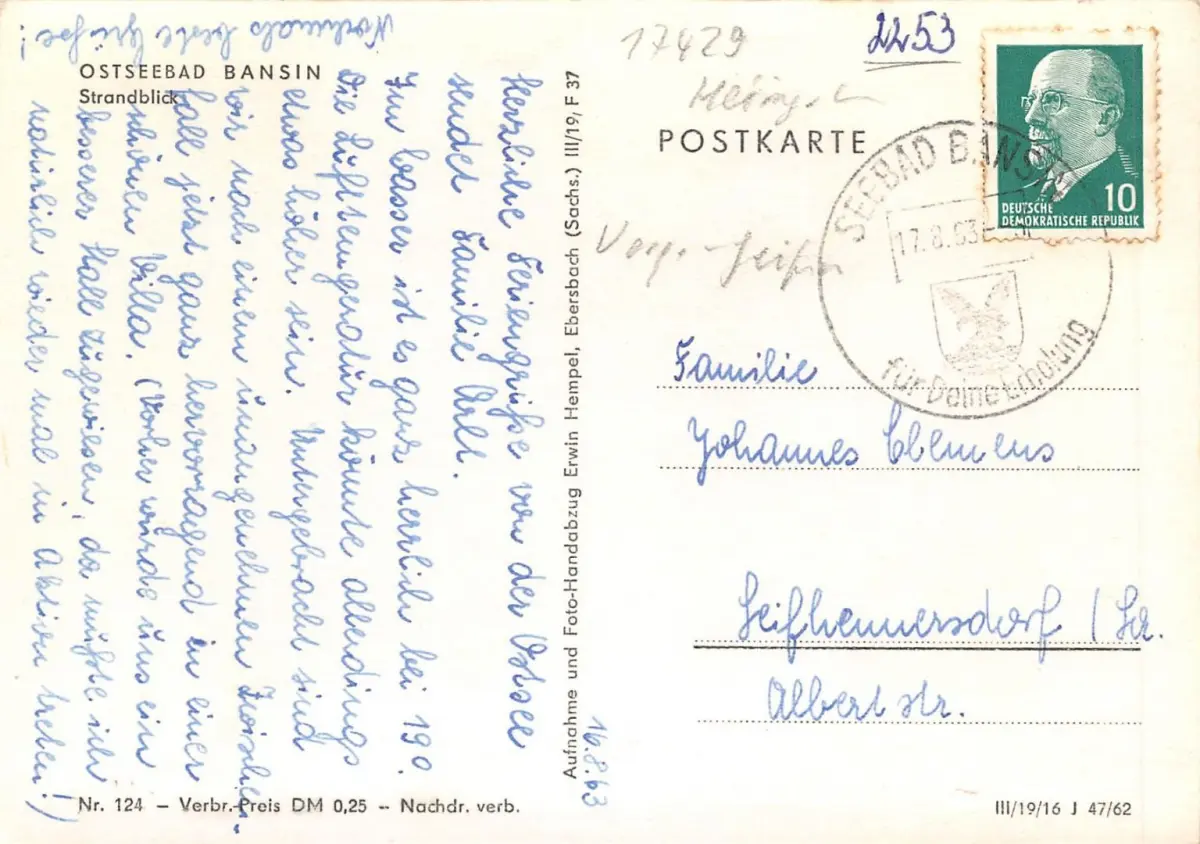 OSTSEEBAD BANSIN
Strandblick
16.8.63
Herzliche Feriengrüße von der Ostsee
sendet Familie Arlt.
Im Wasser ist es ganz herrlich bei 19°.
Die Lufttemperatur könnte allerdings
etwas höher sein. Untergebracht sind
wir nach einem unangenehmen Zwischen-
fall jetzt ganz hervorragend in einer
schönen Villa. (Vorher wurde uns ein
besserer Stall zugewiesen, da mußte ich
natürlich wieder mal in Aktion treten!)
Nochmals beste Grüße!
Nr. 124 – Verbr.-Preis DM 0,25 – Nachdr. verb.
Aufnahme und Foto-Handabzug Erwin Hempel, Ebersbach (Sachs.) III/19/F 37
17429
2253
POSTKARTE
10
DEUTSCHE
DEMOKRATISCHE REPUBLIK
SEEBAD BANSIN
17.8.63
für Deine Erholung
Familie
Johannes Clemens
Seifhennersdorf / Sa.
Albertstr.
III/19/16 J 47/62